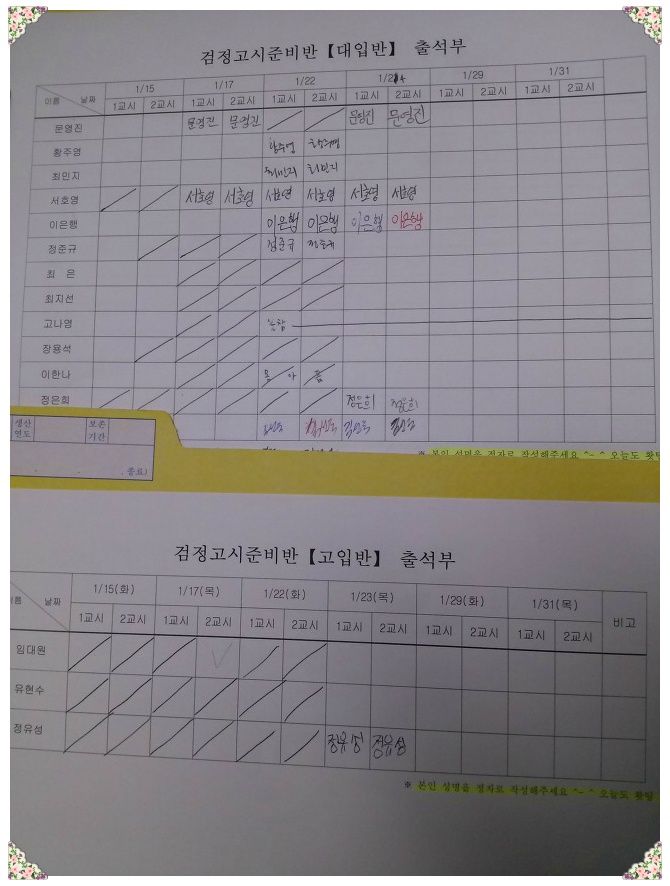 검정고시준비반【대입반】 출석부
이름 날짜 1/15 1/17 1/22 1/24 1/29 1/31
1교시 2교시 1교시 2교시 1교시 2교시 1교시 2교시 1교시 2교시 1교시 2교시
문영진 문영진 문영진 문영진 문영진
황주영 황주영 황주영
최민지 최민지 최민지
서호영 서호영 서호영 서호영 서호영 서호영 서호영
이은행 이은행 이은행 이은행 이은행
정준규 정준규 정준규
최 은
최지선
고나영
장용석
이한나
정은희 정은희 정은희
생산연도 보존기간
종료)
※ 본인 성명을 정자로 작성해주세요 ^-^ 오늘도 홧팅
검정고시준비반【고입반】 출석부
이름 날짜 1/15(화) 1/17(목) 1/22(화) 1/23(목) 1/29(화) 1/31(목) 비고
1교시 2교시 1교시 2교시 1교시 2교시 1교시 2교시 1교시 2교시 1교시 2교시
임대원
유현수
정유성 정유성 정유성
※ 본인 성명을 정자로 작성해주세요 ^-^ 오늘도 홧팅